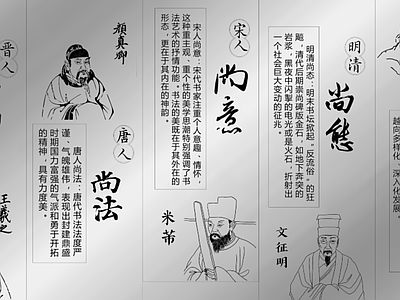 晋人
王羲之
颜真卿
唐人
尚法
唐人尚法：唐代书法法度严
谨、气魄雄伟，表现出封建鼎盛
时期国力富强的气派和勇于开拓
的精神，具有力度美。
宋人
尚意
宋人尚意：宋代书家注重个人意趣、情怀，
这种重主观、重个性的美学思潮特别强调了书
法艺术的抒情功能。书法的美既在于其外在的
形态，更在于其内在的神韵。
米芾
明清
尚态
明清尚态：明末书坛掀起“反流俗”的狂
飚，清代后期崇尚碑版金石，如地下奔突的
岩浆，黑夜中闪掣的电光或是火石，折射出
一个社会巨大变动的征兆。
文征明
越向多样化、深入化发
展。